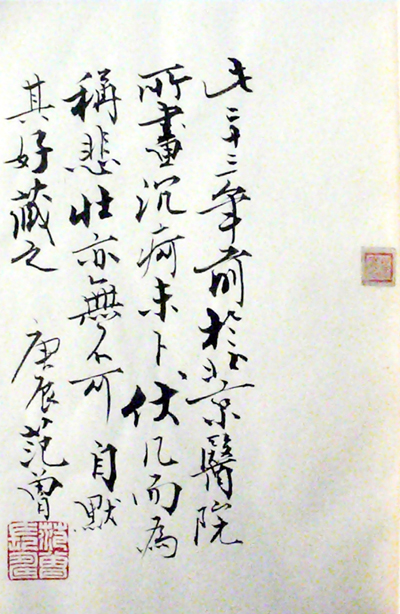 此二十三年前於北京醫院
所畫沉痾未卜伏几而為
稱悲壯亦無不可 自默
其好藏之 庚辰范曾